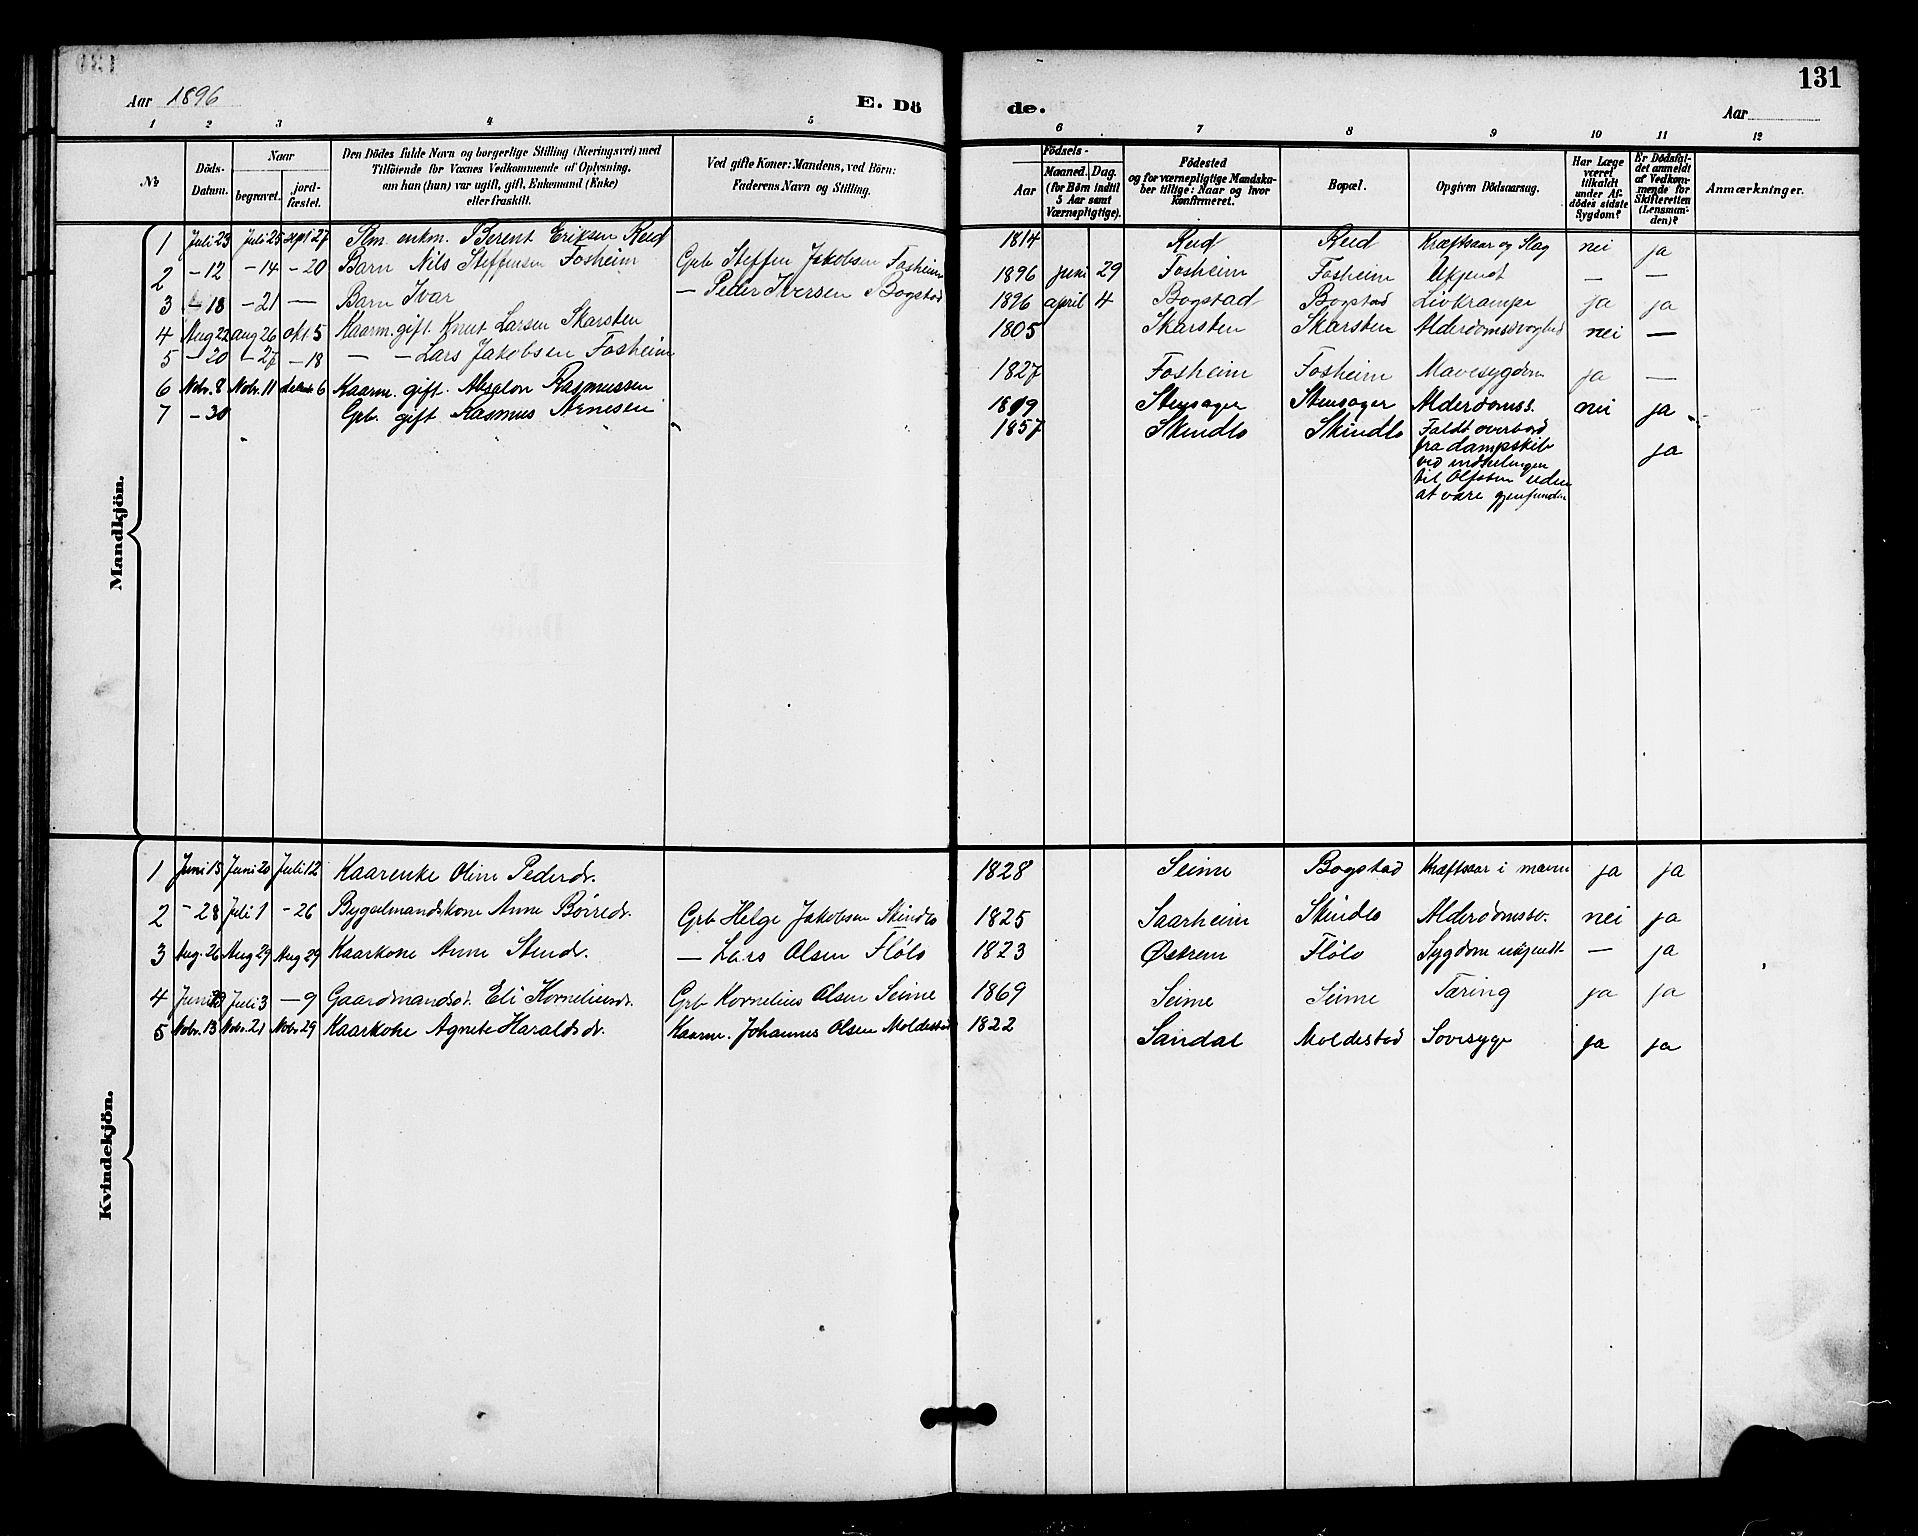 131
Aar 1896
E. Dö
de.
Aar
1 2 3 4 5 6 7 8 9 10 11 12
No
Döds-Datum.
Naar
begravet.
jord-fæstet.
Den Dödes fulde Navn og borgerlige Stilling (Næringsvei) med
Tilföiende for Voxnes Vedkommende af Oplysning,
om han (hun) var ugift, gift, Enkemand (Enke)
eller fraskilt.
Ved gifte Koner: Mandens, ved Börn:
Faderens Navn og Stilling.
Födsels-
Aar
Maaned. Dag.
(for Börn indtil
5 Aar samt
Værnepligtige).
Födested
og for værnepligtige Mandska-
ber tillige: Naar og hvor
konfirmeret.
Bopæl.
Opgiven Dödsaarsag.
Har Læge
været
tilkaldt
under Af-
dödes sidste
Sygdom?
Er Dödsfal-
det anmeldt
af Vedkom-
mende for
Skifteretten
(Lensman-
den)?
Anmærkninger.
Mandkjön.
1 Juli 23 Juli 25 sept 27 enkm. Berent Eriksen Reed 1814 Reed Reed Kræftsaar og Slag nei ja
2 -12 -14 -20 Barn Nils Steffensen Fosheim Grb Steffen Jakobsen Fosheim 1896 juni 29 Fosheim Fosheim Ukjendt — —
3 -18 -21 — Barn Ivar — Peder Iversen Bogstad 1896 april 4 Bogstad Bogstad Livkrampe ja ja
4 Aug 22 aug 26 okt 5 Kaarm. gift. Knut Larsen Skarsten 1805 Skarsten Skarsten nei —
5 -20 -27 -18 — — Lars Jakobsen Fosheim 1827 Fosheim Fosheim Mavesygdom ja —
6 Nobr. 8 Nobr. 11 6 Kaarm. gift. Absalon Rasmussen 1819 Stensager Stensager Alderdomss. nei ja
7 -30 Grb. gift Rasmus Arnesen 1857 Skindlo Skindlo Faldt overbord
fra dampskib
ved indseilingen
til uden
at være gjenfunden
ja
Kvindekjön.
1 Juni 15 Juni 20 Juli 12 Kaarenke Oline Pedersdr. 1828 Seime Bogstad Kræftsaar i maven ja ja
2 -28 Juli 1 -26 Bygselmandskone Anne Börredr. Grb Helge Jakobsen Skindlo 1825 Saarheim Skindlo Alderdomssv. nei ja
3 Aug. 26 Aug 29 Aug 29 Kaarkone Anne Stensdr. — Lars Olsen Flölo 1823 Östrem Flölo Sygdom ukjendt — ja
4 Juni Juli 3 -9 Gaardmandsdt. Eli Korneliusdr. Grb Kornelius Olsen Seime 1869 Seime Seime Tæring ja ja
5 Nobr. 13 Nobr. 21 Nobr 29 Kaarkone Agnete Haraldsdr. Kaarm. Johannes Olsen Moldestad 1822 Sandal Moldestad Sovesyge ja ja